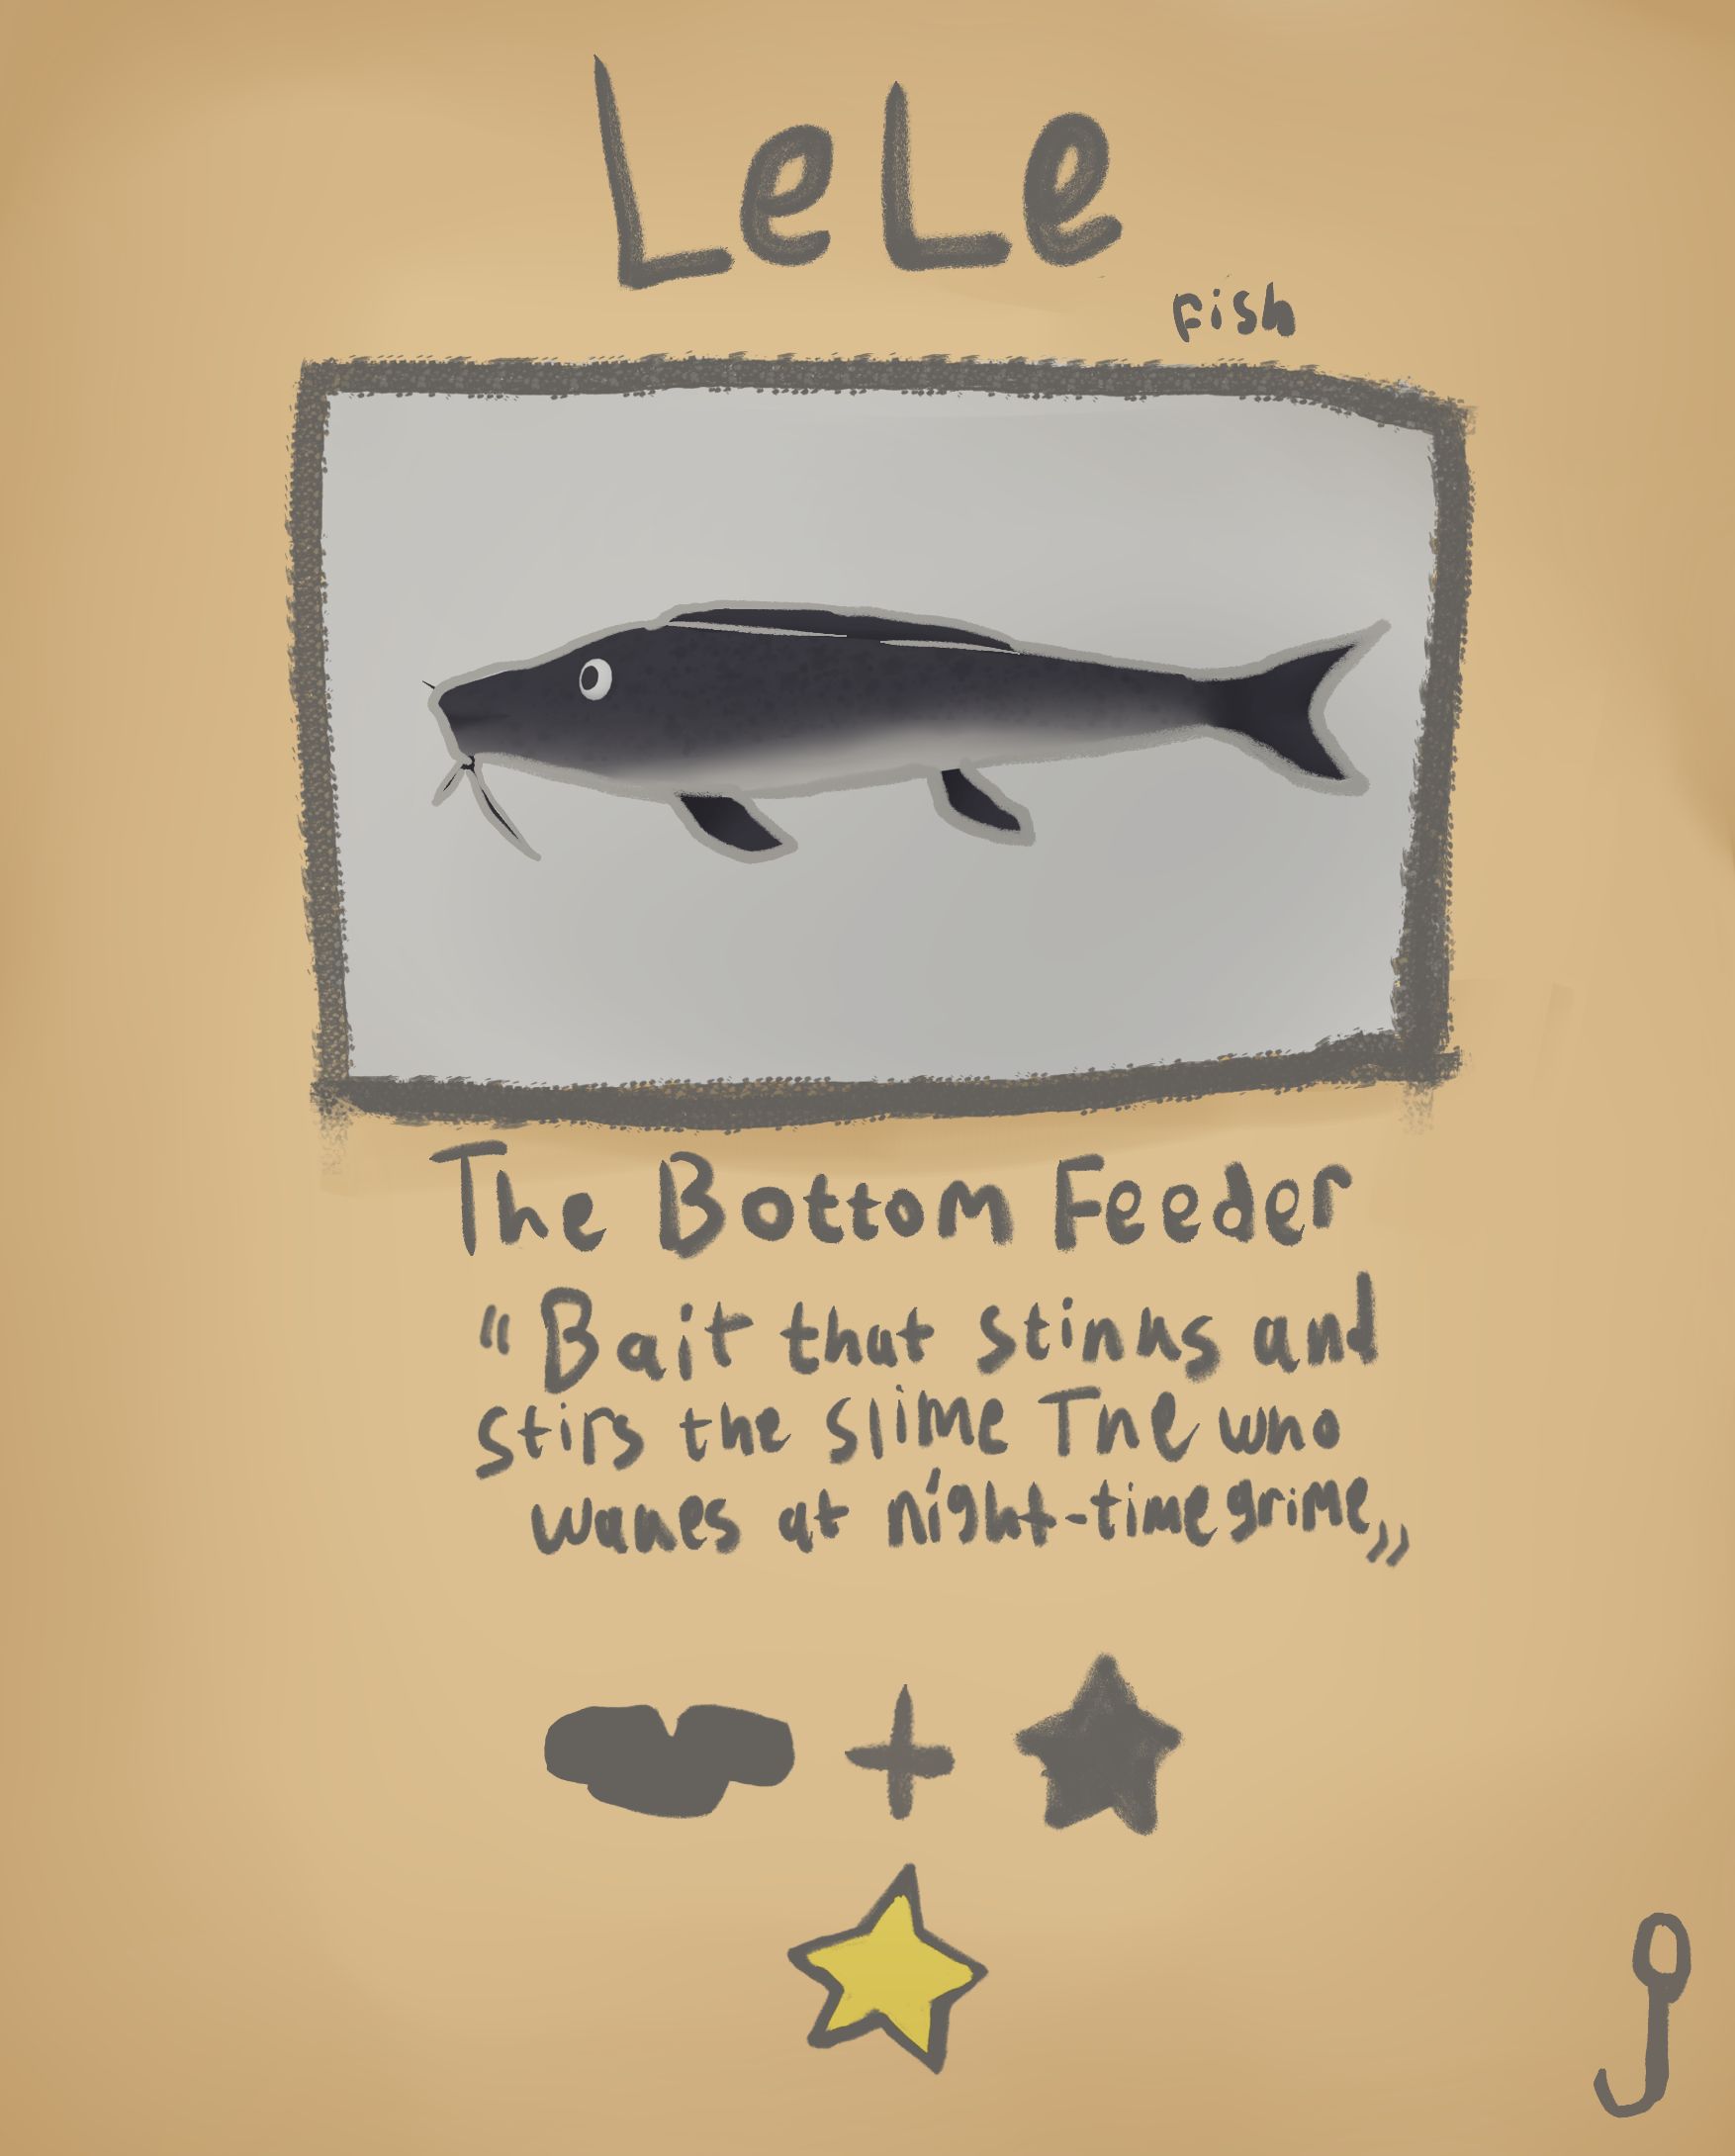 LeLe
fish
The Bottom Feeder
"Bait that stinks and
stirs the slime The who
wakes at night-time grime"
+